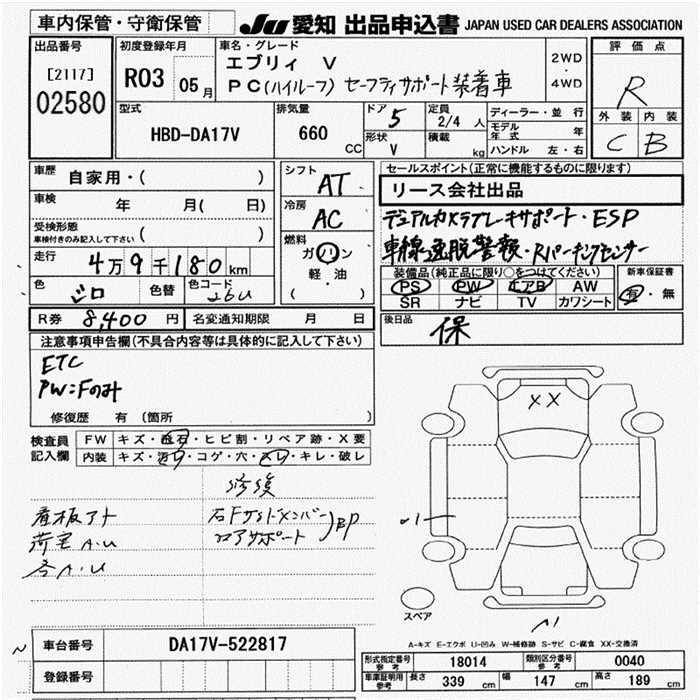 車内保管・守衛保管 JU 愛知 出品申込書 JAPAN USED CAR DEALERS ASSOCIATION
出品番号
[2117]
02580
初度登録年月
R03 05月
車名・グレード
エブリィ V
PC(ハイルーフ) セーフティサポート装着車
2WD
・
4WD
評価点
R
外装 内装
C B
型式
HBD-DA17V
排気量
660 CC
ドア 5
形状 V
定員 2/4 人
積載 kg
ディーラー・並行
モデル年式 年
ハンドル 左・右
車歴 自家用・( )
車検 年 月( 日)
受検形態
車検付きのみ記入して下さい ( )
走行 4万9千180km
色 シロ 色替 色コード 26U
シフト AT
冷房 AC
燃料
ガソリン
軽・油
( )
セールスポイント(正常に機能するものに限ります)
リース会社出品
デュアルカメラブレーキサポート・ESP
車線逸脱警報・Rパーキングセンサー
装備品(純正品に限り○をつけてください)
PS PW エアB AW
SR ナビ TV カワシート
新車保証書
有・無
R券 8,400円 名変通知期限 月 日
後日品 保
注意事項申告欄(不具合内容等は具体的に記入して下さい)
ETC
PW:Fのみ
修復歴 有(箇所 )
検査員記入欄
FW キズ・飛石・ヒビ割・リペア跡・X要
内装 キズ・汚レ・コゲ・穴・スレ・キレ・破レ
修復
看板アト
荷室A.U
各A.U
右Fサイドメンバー
コアサポート
BP
XX
スペア
A-キズ E-エクボ U-凹み W-補修跡 S-サビ C-腐食 XX-交換済
車台番号 DA17V-522817
登録番号
形式指定番号 参考 18014 類別区分番号 参考 0040
車庫証明用 参考 長さ 339 cm 幅 147 cm 高さ 189 cm